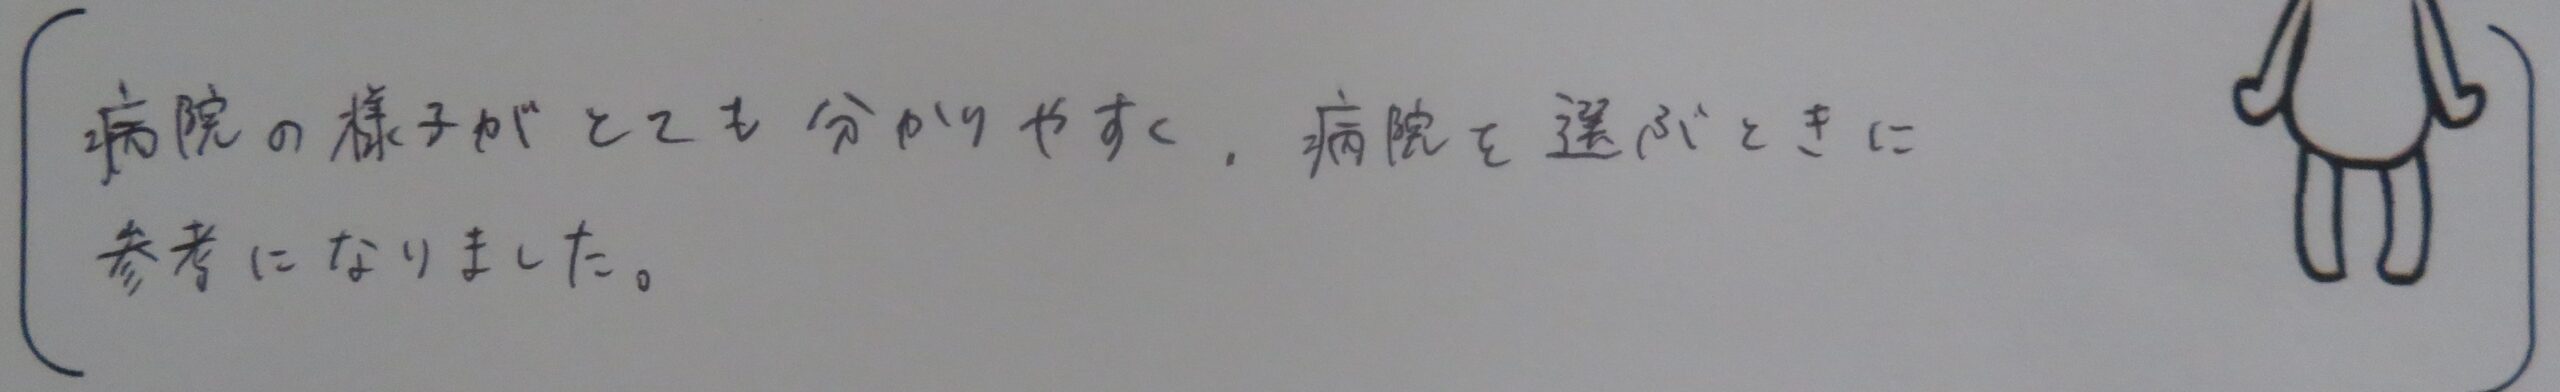 病院の様子がとても分かりやすく、病院を選ぶときに
参考になりました。